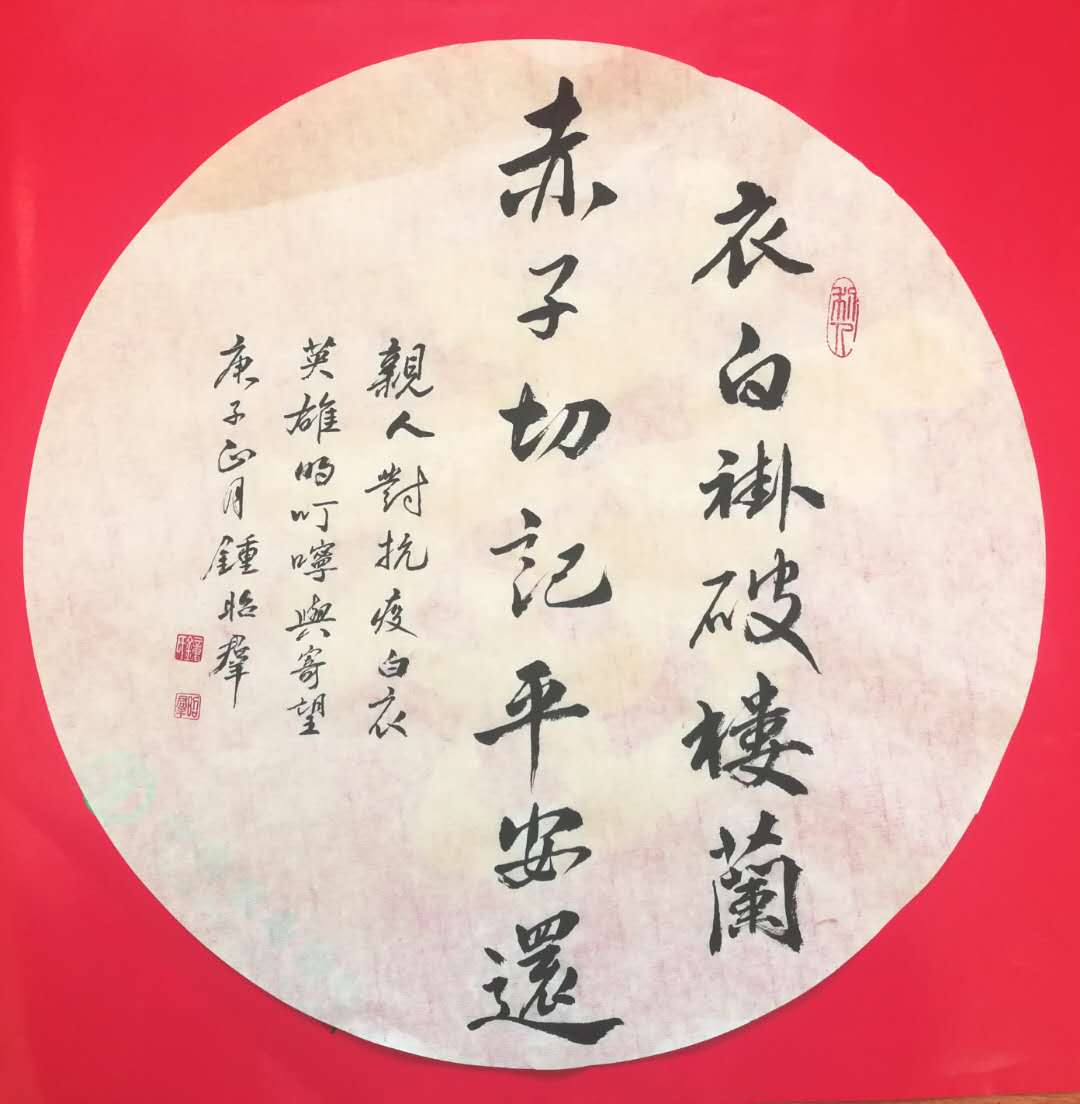 衣白褂破楼蘭
赤子切記平安還
親人對抗疫白衣
英雄的叮嚀與寄望
庚子正月鍾昭羣